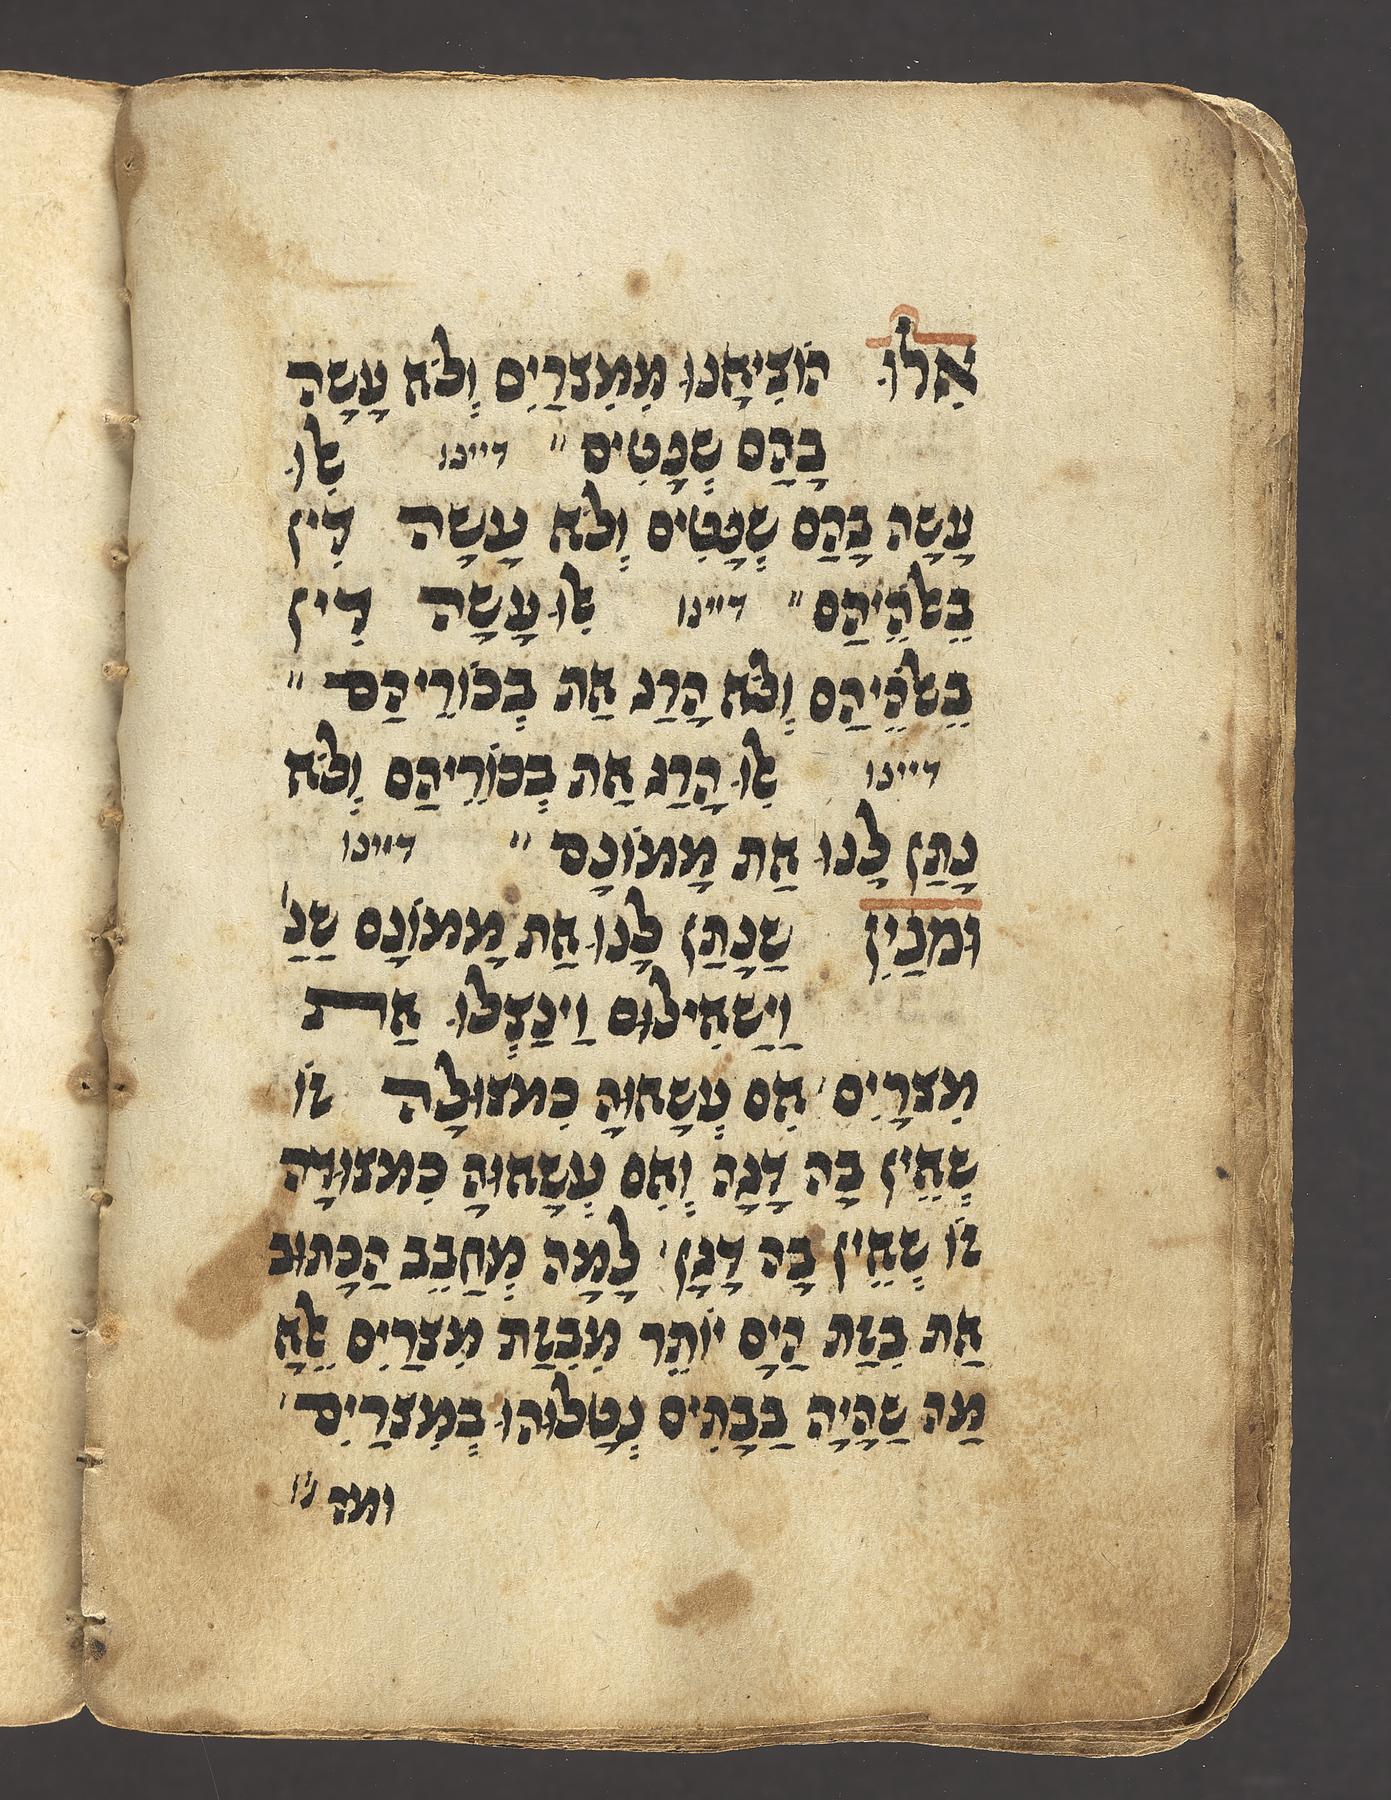 אִלוּ הוֹצִיאָנוּ מִמִצרַיִם וְלֹא עָשָה
בָהַם שְפָטִים״ דיינו אִלוּ
עָשָה בָהַם שְפָטִים וְלֹא עָשָה דִין
בֵאלֹהֵיהַם״ דיינו אִלוּ עָשָה דִין
בֵאלֹהֵיהַם וְלֹא הָרַג אַת בְכוֹרֵיהַם״
דיינו אִלוּ הָרַג אַת בְכוֹרֵיהַם וְלֹא
נָתַן לָנוּ אַת מָמוֹנָם״ דיינו
וּמנַיִן שַנָתַן לָנוּ אַת מָמוֹנָם שַנַ׳
וַיַשאִילוּם וַינַצְלוּ אַת
מִצרָיִם׳ אִם עְשָאוּהָ כִמצוּלָה זוֹ
שְאֵין בָה דָגָה וְאִם עְשָאוּהָ כִמצוּדָה
זוֹ שְאֵין בָה דָגָן׳ לָמָה מְחַבֵב הַכָתוּב
אַת בִזַת הַיָם יוֹתֵר מִבִזַת מִצרַיִם אֵלָא
מַה שַהָיָה בַבָתִים נְטָלוּהוּ בְמִצרַיִם׳
ומה